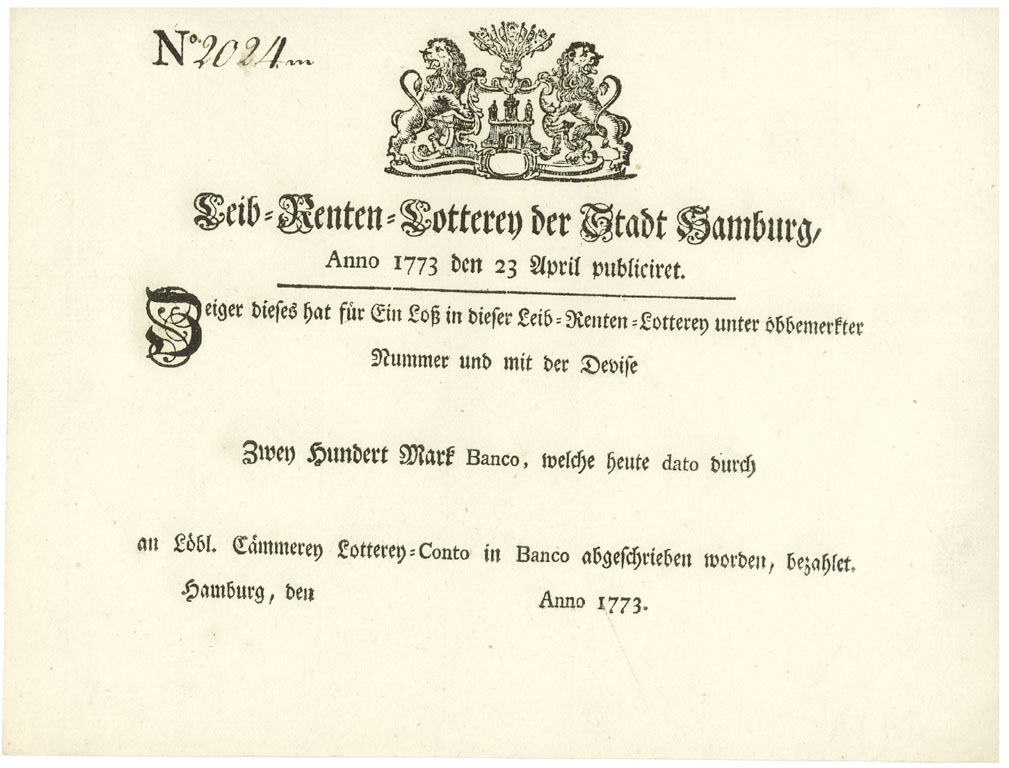 No. 2024 m
Leib-Renten-Lotterey der Stadt Hamburg,
Anno 1773 den 23 April publiciret.
Zeiger dieses hat für Ein Loß in dieser Leib-Renten-Lotterey unter obbemerkter
Nummer und mit der Devise
Zwey Hundert Mark Banco, welche heute dato durch
an Löbl. Cämmerey Lotterey-Conto in Banco abgeschrieben worden, bezahlet.
Hamburg, den Anno 1773.